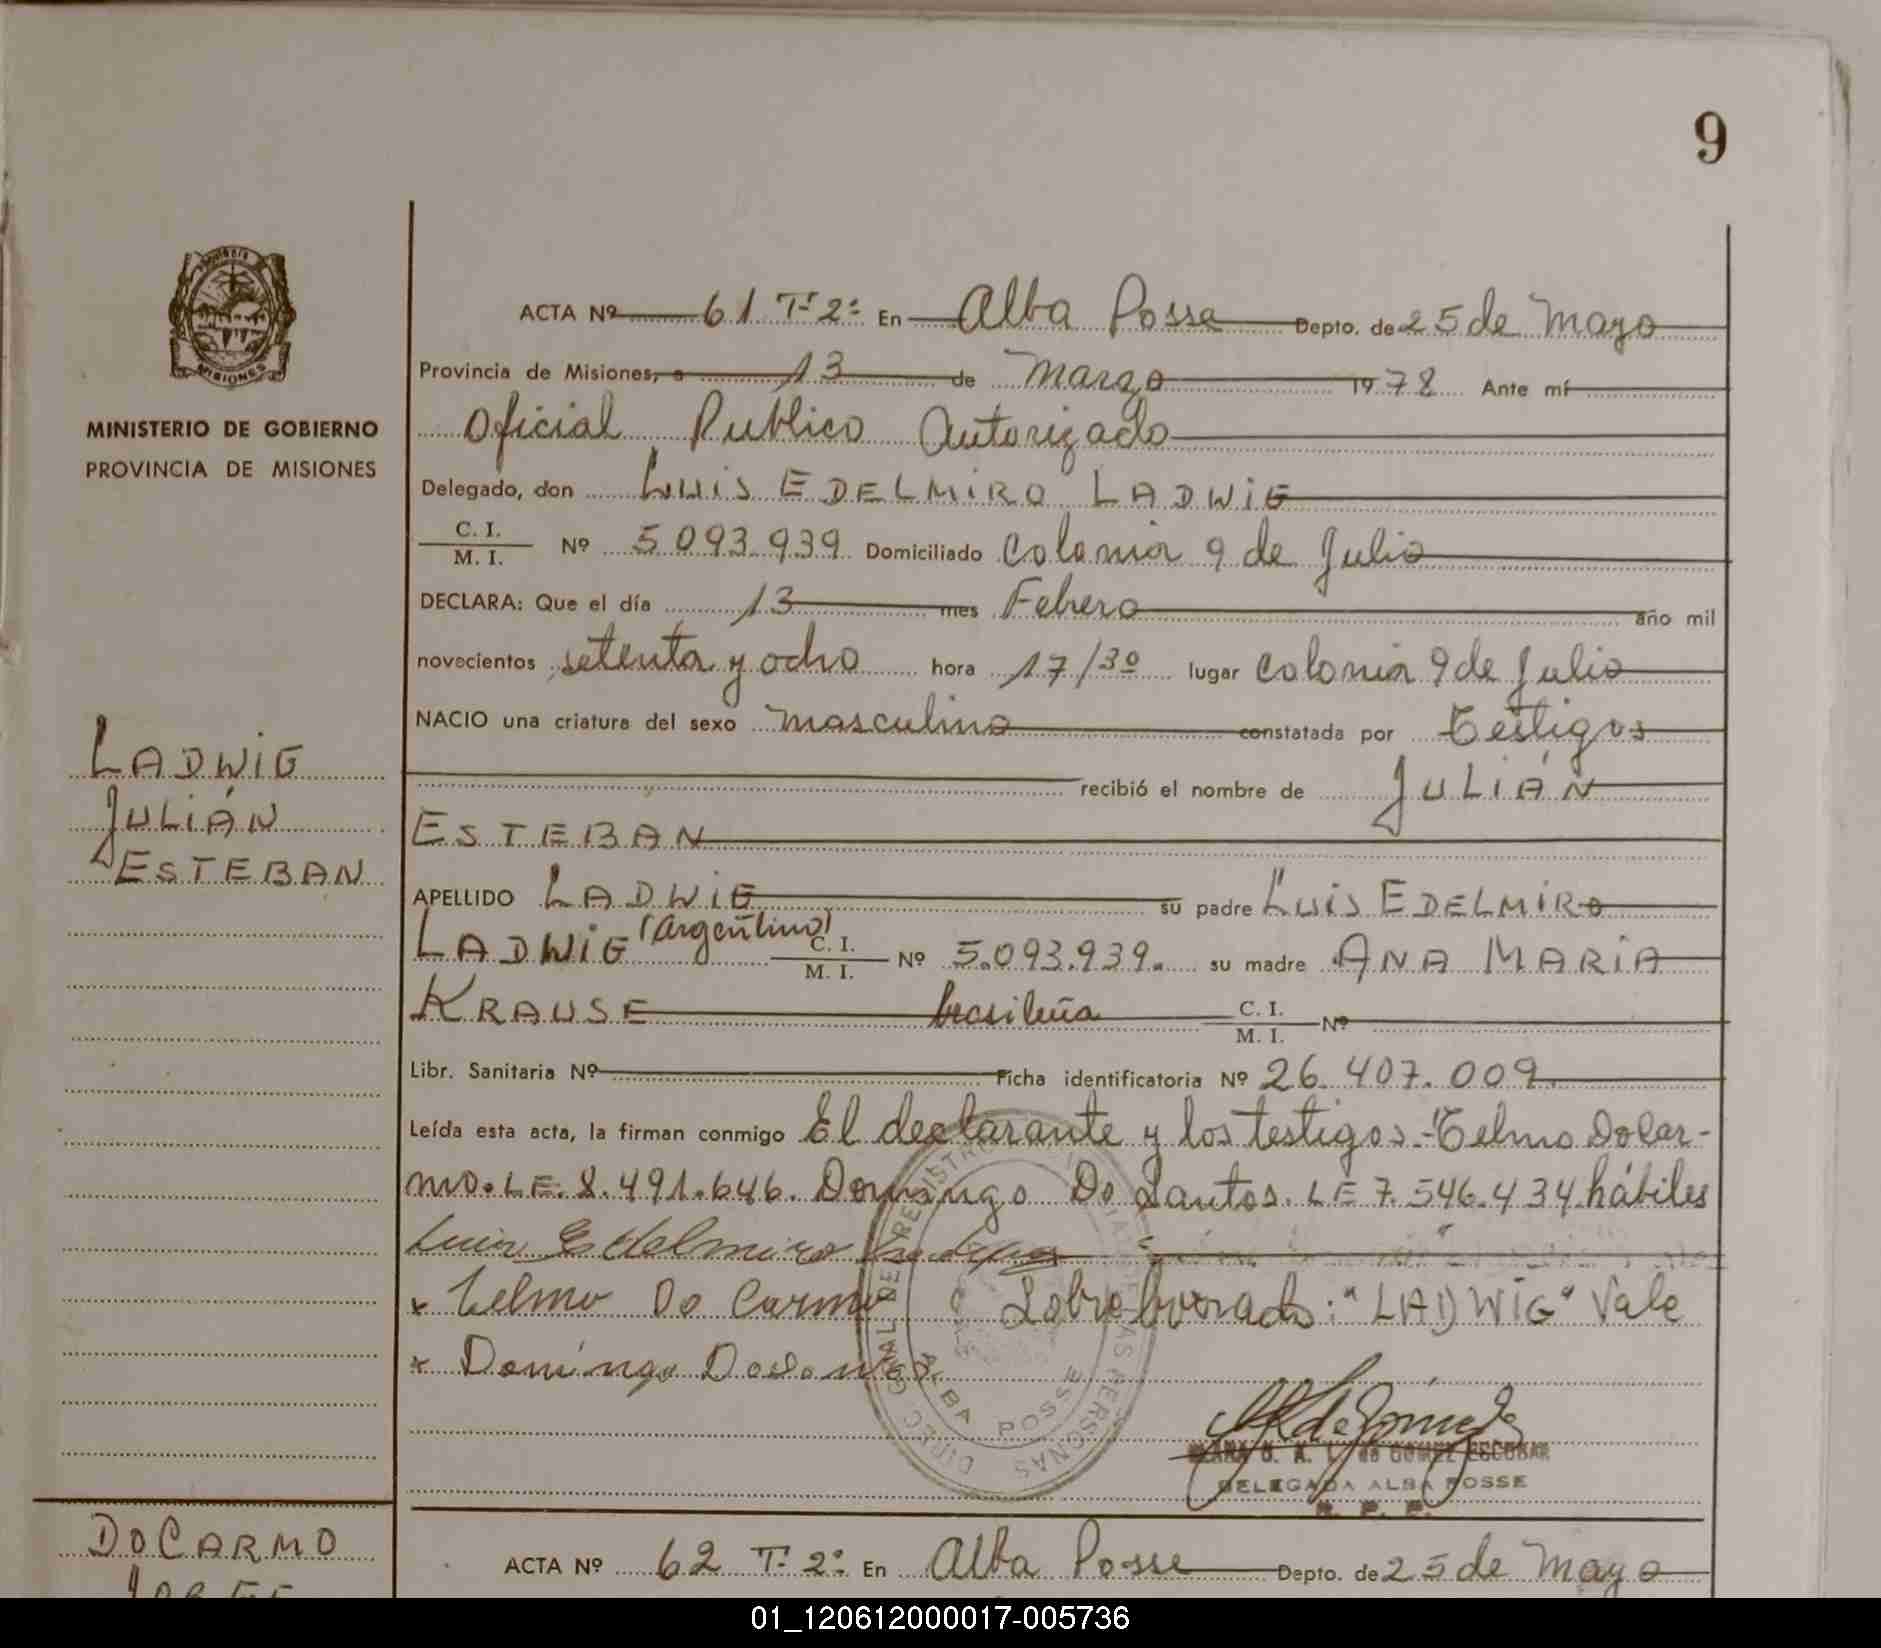 9
MISIONES
MINISTERIO DE GOBIERNO
PROVINCIA DE MISIONES
LADWiG
JULiÁN
ESTEBAN
ACTA Nº 61 Tº 2º En Alba Posse Depto. de 25 de Mayo
Provincia de Misiones, a 13 de Marzo 1978 Ante mí
Oficial Publico Autorizado
Delegado, don LUiS EDELMiRO LADWiG
C. I.
M. I. Nº 5.093.939 Domiciliado Colonia 9 de Julio
DECLARA: Que el día 13 mes Febrero año mil
novecientos setenta y ocho hora 17/30 lugar Colonia 9 de Julio
NACIO una criatura del sexo masculino constatada por Testigos
recibió el nombre de JULiÁN
ESTEBAN
APELLIDO LADWiG su padre LUiS EDELMiRO
LADWiG (Argentino) C. I. M. I. Nº 5.093.939. su madre ANA MARiA
KRAUSE brasileña C. I. M. I. Nº
Libr. Sanitaria Nº Ficha identificatoria Nº 26.407.009.
Leída esta acta, la firman conmigo El declarante y los testigos.-Telmo Do Car-
mo. LE. 8.491.646. Domingo Do Santos. LE 7.546.434 hábiles
Luis Edelmiro Ladwig
x Telmo Do Carmo Sobreborrado: "LADWiG" Vale
x Domingo Do
ALBA POSSE
PERSONAS
de GOMEZ ESCOBAR
DELEGADA ALBA POSSE
R. P. P.
DO CARMO
ACTA Nº 62 Tº 2º En Alba Posse Depto. de 25 de Mayo
01_120612000017-005736